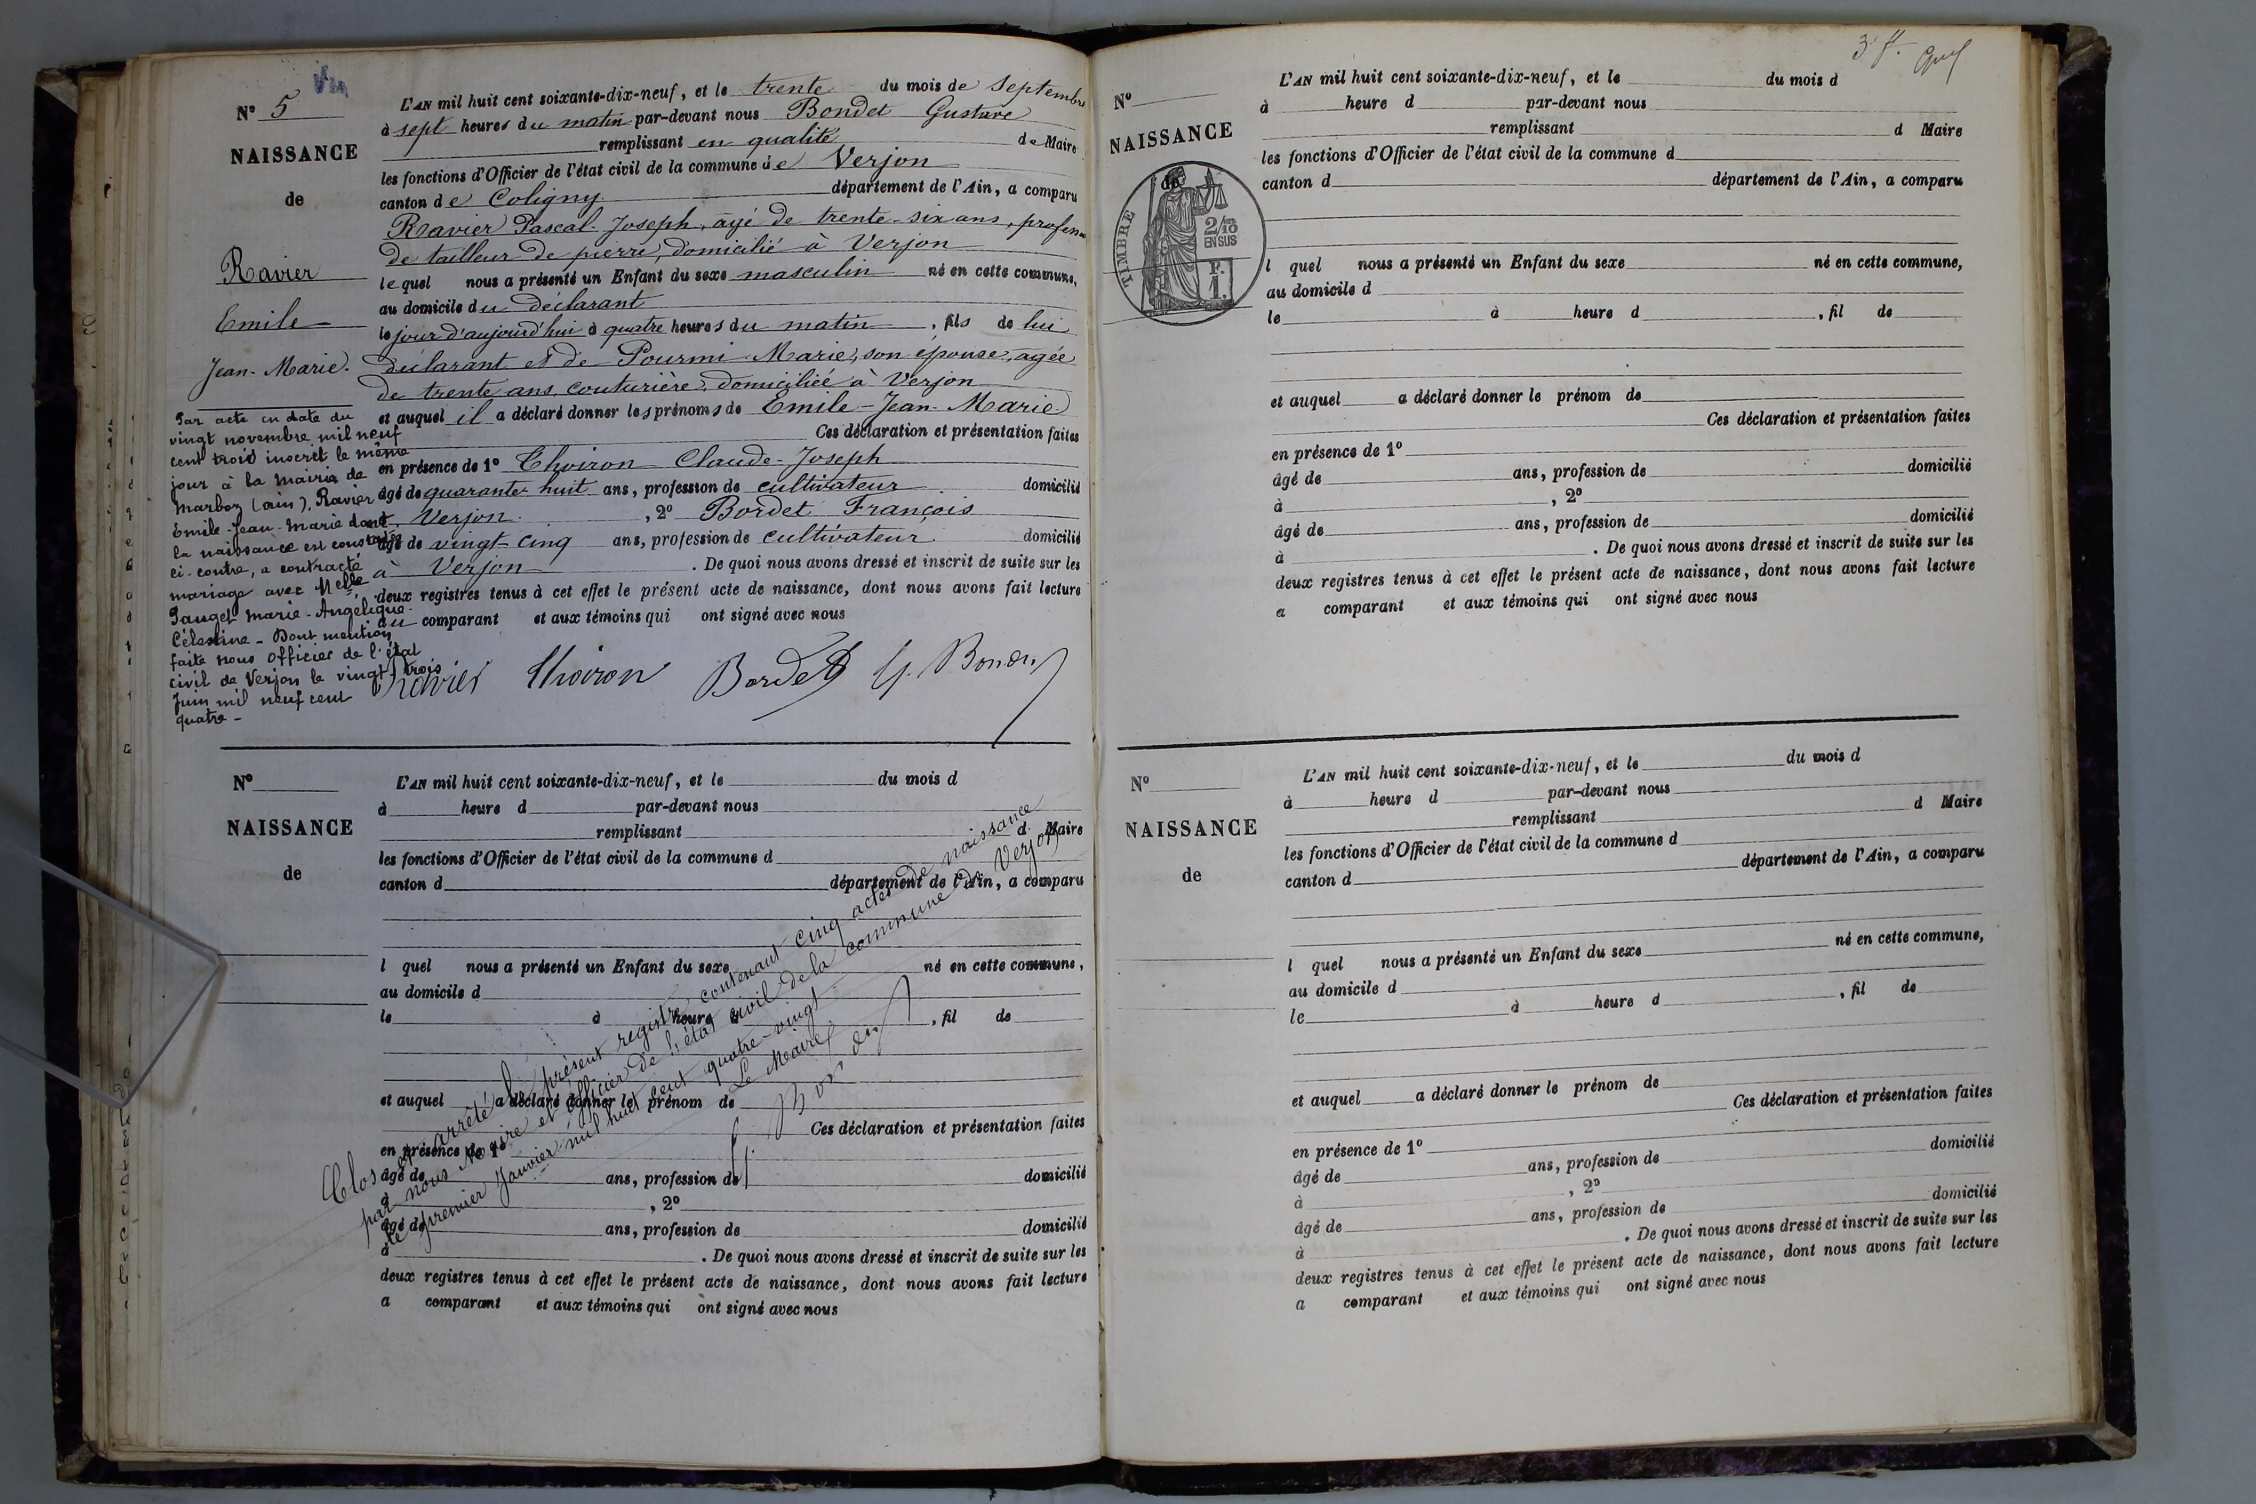 Vu
N° 5
NAISSANCE
de
Ravier
Emile
Jean-Marie.
Par acte en date du
vingt novembre mil neuf
cent trois inscrit le même
jour à la mairie de
Marboz (ain), Ravier
Emile-Jean-Marie dont
la naissance est constatée
ci-contre, a contracté
mariage avec Melle
Pauget Marie-Angélique-
Célestine - Dont mention
faite nous officier de l'état
civil de Verjon le vingt trois
Juin mil neuf cent
quatre -
L'AN mil huit cent soixante-dix-neuf, et le trente du mois de Septembre
à sept heures du matin par-devant nous Bondet Gustave
remplissant en qualité de Maire
les fonctions d'Officier de l'état civil de la commune de Verjon
canton de Coligny département de l'Ain, a comparu
Ravier Pascal-Joseph, âgé de trente-six ans, profession
de tailleur de pierre, domicilié à Verjon
lequel nous a présenté un Enfant du sexe masculin né en cette commune,
au domicile du déclarant
le jour d'aujourd'hui à quatre heures du matin, fils de lui
déclarant et de Pourmi Marie, son épouse, agée
de trente ans, couturière, domiciliée à Verjon
et auquel il a déclaré donner les prénoms de Emile-Jean-Marie
Ces déclaration et présentation faites
en présence de 1° Thoiron Claude-Joseph
âgé de quarante huit ans, profession de cultivateur domicilié
à Verjon, 2° Bordet François
âgé de vingt-cinq ans, profession de cultivateur domicilié
à Verjon. De quoi nous avons dressé et inscrit de suite sur les
deux registres tenus à cet effet le présent acte de naissance, dont nous avons fait lecture
au comparant et aux témoins qui ont signé avec nous
Ravier Thoiron Bordet G. Bondet
N°
NAISSANCE
de
L'AN mil huit cent soixante-dix-neuf, et le du mois d
à heure d par-devant nous
remplissant d Maire
les fonctions d'Officier de l'état civil de la commune d
canton d département de l'Ain, a comparu
l quel nous a présenté un Enfant du sexe né en cette commune,
au domicile d
le à heure d, fil de
et auquel a déclaré donner le prénom de
Ces déclaration et présentation faites
en présence de 1°
âgé de ans, profession de domicilié
à, 2°
âgé de ans, profession de domicilié
à. De quoi nous avons dressé et inscrit de suite sur les
deux registres tenus à cet effet le présent acte de naissance, dont nous avons fait lecture
a comparant et aux témoins qui ont signé avec nous
Clos et arrêté le présent registre contenant cinq actes de naissance
par nous Maire et officier de l'état civil de la commune de Verjon
le premier Janvier mil huit cent quatre-vingt
Le Maire
G. Bondet
3 f.
N°
NAISSANCE
de
TIMBRE
2/10
EN SUS
F.
1.
L'AN mil huit cent soixante-dix-neuf, et le du mois d
à heure d par-devant nous
remplissant d Maire
les fonctions d'Officier de l'état civil de la commune d
canton d département de l'Ain, a comparu
l quel nous a présenté un Enfant du sexe né en cette commune,
au domicile d
le à heure d, fil de
et auquel a déclaré donner le prénom de
Ces déclaration et présentation faites
en présence de 1°
âgé de ans, profession de domicilié
à, 2°
âgé de ans, profession de domicilié
à. De quoi nous avons dressé et inscrit de suite sur les
deux registres tenus à cet effet le présent acte de naissance, dont nous avons fait lecture
a comparant et aux témoins qui ont signé avec nous
N°
NAISSANCE
de
L'AN mil huit cent soixante-dix-neuf, et le du mois d
à heure d par-devant nous
remplissant d Maire
les fonctions d'Officier de l'état civil de la commune d
canton d département de l'Ain, a comparu
l quel nous a présenté un Enfant du sexe né en cette commune,
au domicile d
le à heure d, fil de
et auquel a déclaré donner le prénom de
Ces déclaration et présentation faites
en présence de 1°
âgé de ans, profession de domicilié
à, 2°
âgé de ans, profession de domicilié
à. De quoi nous avons dressé et inscrit de suite sur les
deux registres tenus à cet effet le présent acte de naissance, dont nous avons fait lecture
a comparant et aux témoins qui ont signé avec nous